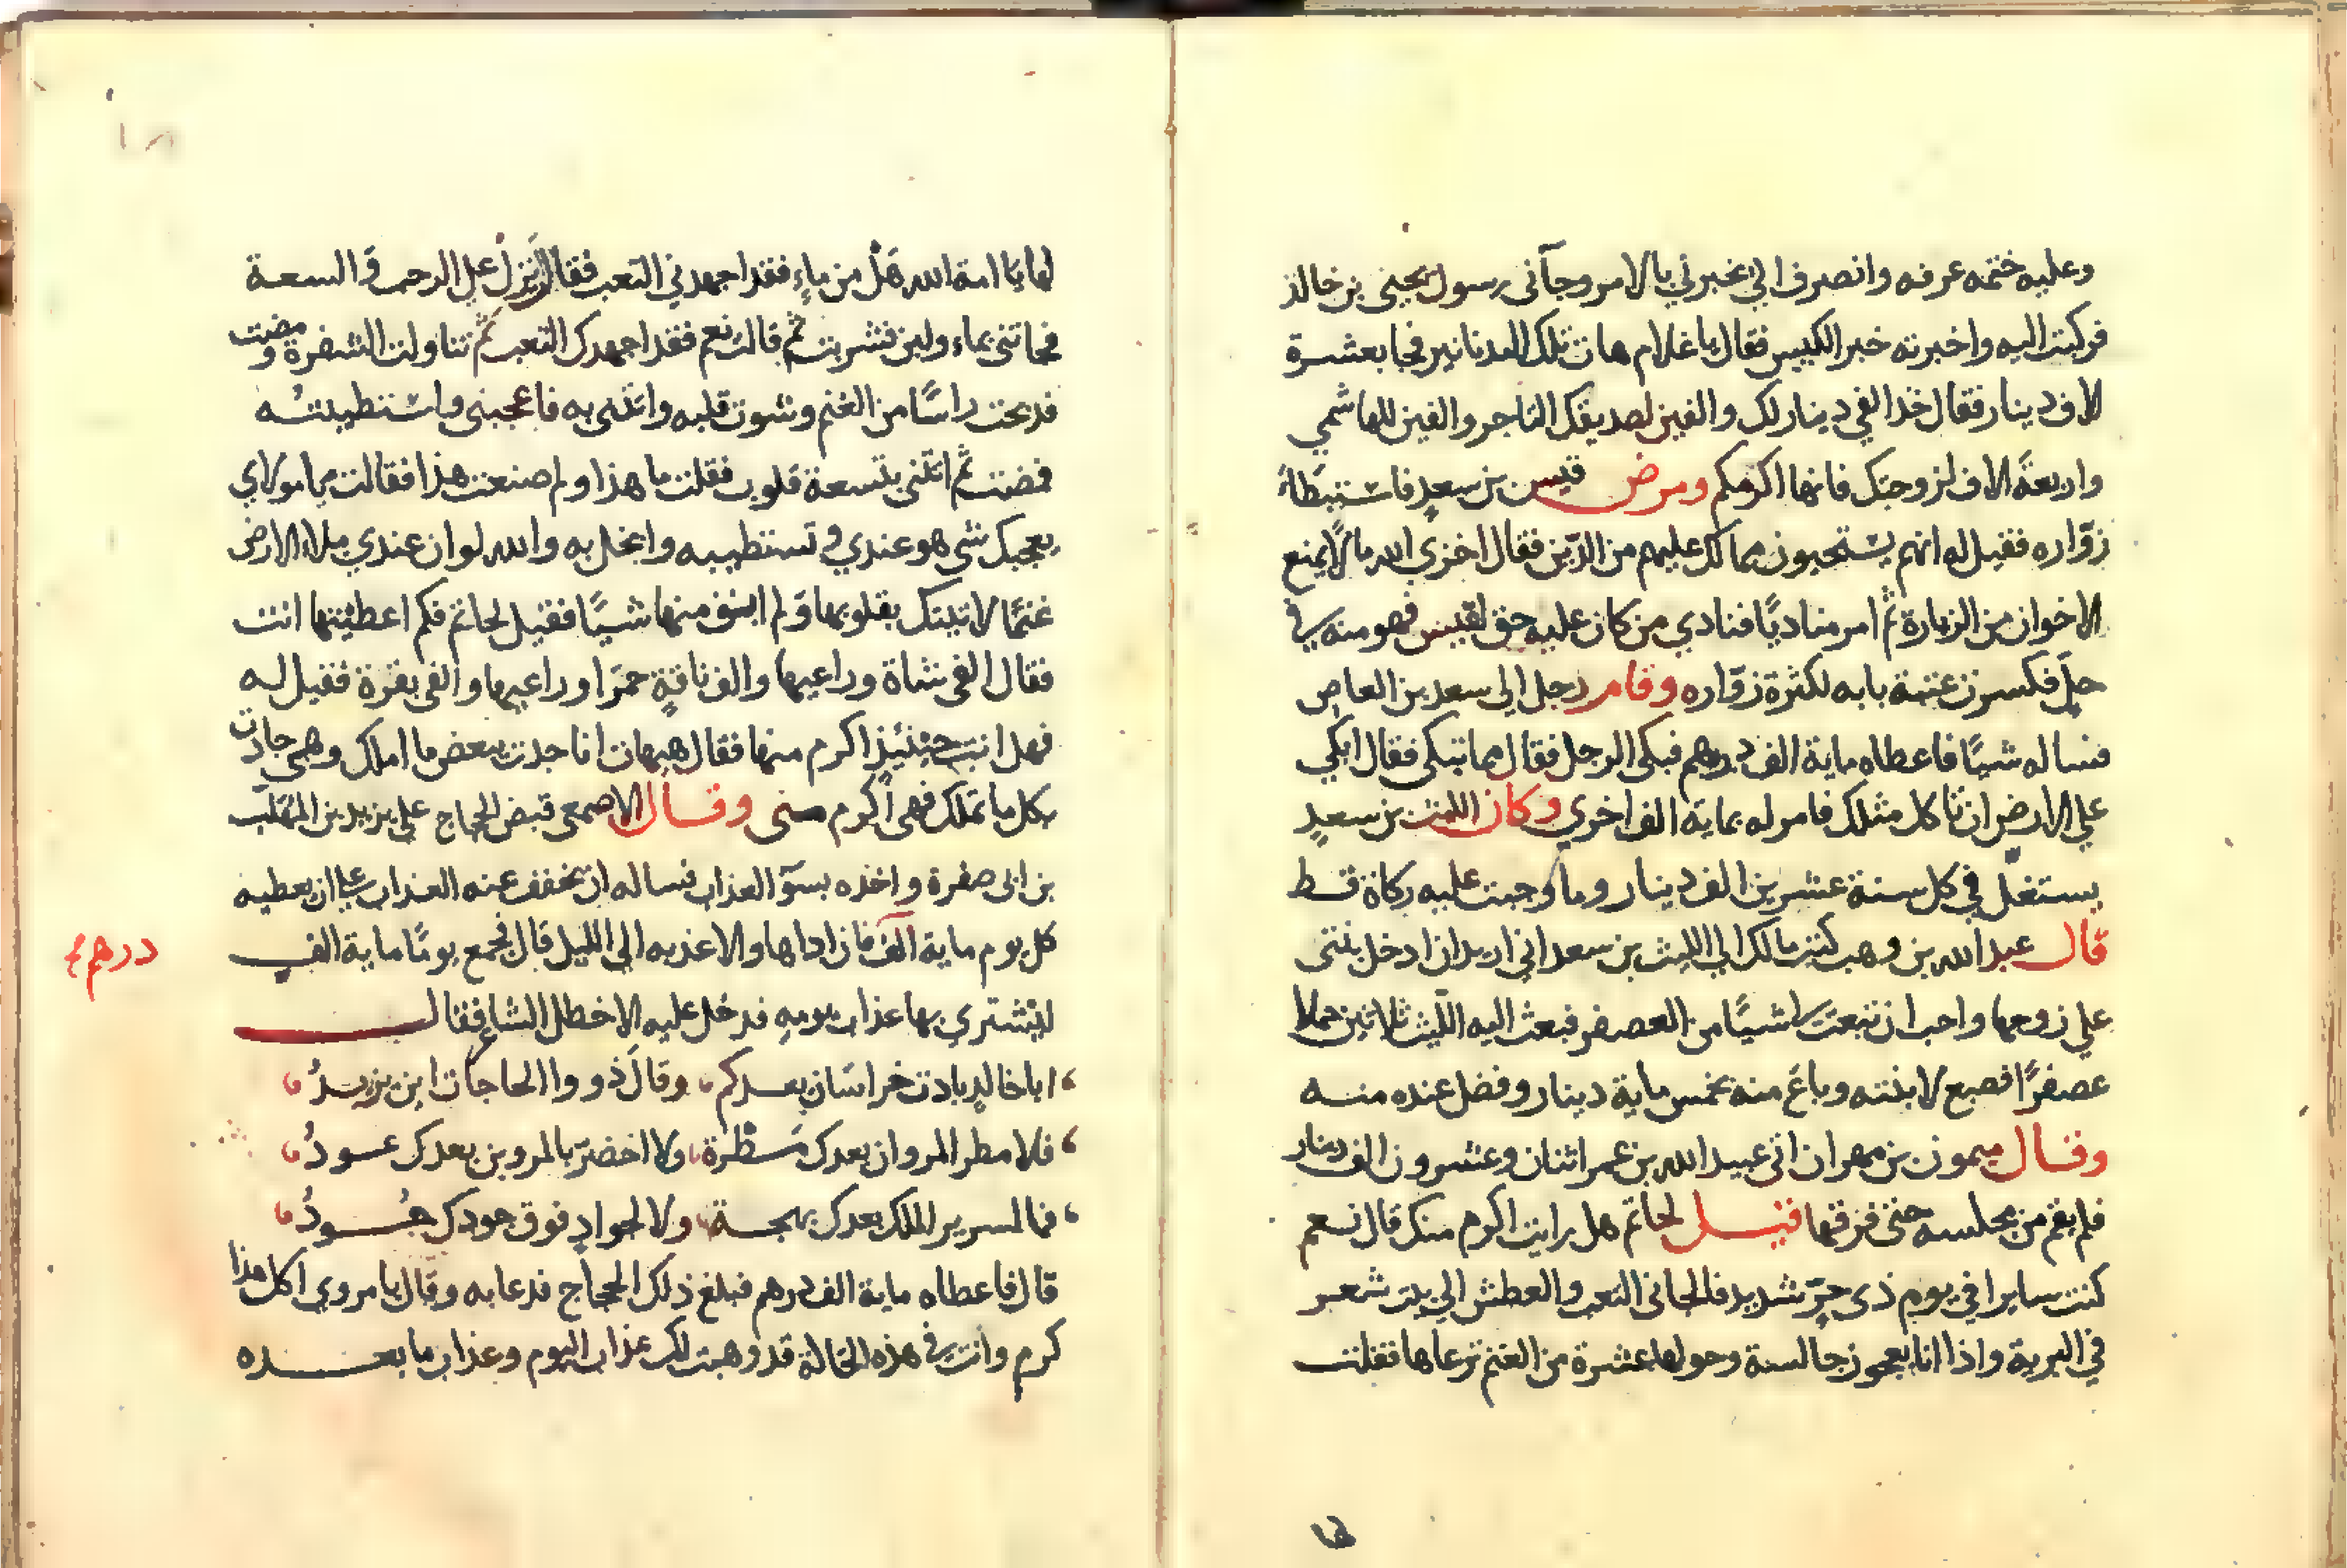 وعليه ختمه عرفه وانصرف الي يخبرني بالامر وجآنى رسول يحيى بن خالد
فركبت اليه واخبرته خبر الكيس فقال يا غلام هات تلك الدنانير فجا بعشرة
الاف دينار فقال خذ الفي دينار لك والفين لصديقك التاجر والفين للهاشمي
واربعة الاف لزوجتك فانها اكرمكم ومرض قيس بن سعد فاستبطاء
زوّاره فقيل له انهم يستحيون مما لك عليهم من الدّين فقال اخزي الله مالاً يمنع
الاخوان من الزيارة ثم امر مناديًا فنادي من كان عليه حق لقيس فهو منه في
حلّ فكسرت عتبة بابه لكثرة زوّاره وقام رجل الى سعد بن العاص
فساله شيًا فاعطاه ماية الف درهم فبكى الرجل فقال مما تبكى فقال ابكي
علي الارض ان تاكل مثلك فامر له بماية الف اخري وكان الليث بن سعيد
يستغلّ في كل سنة عشرين الف دينار وما وجبت عليه زكاة قط
قال عبد الله بن وهب كتب مالك الى الليث بن سعد اني اريد ان ادخل بنتى
علي زوجها واحب ان تبعث لي شيًا من العصفر فبعث اليه اللّيث ثلاثين حملا
عصفرًا فصبغ لابنته وباع منه بخمس ماية دينار وفضل عنده منه
وقال ميمون بن مهران اتى عبيد الله بن عمر اثنان وعشرون الف دينار
فلم يقم من مجلسه حتى فرقها قيل لحاتم هل رايت اكرم منك قال نعم
كنت سايرا في يوم ذى حرّ شديد فالجانى التعب والعطش الي بيت شعر
في البرية واذا انا بعجوز جالسة وحولها عشرة من الغنم ترعاها فقلت
لها
لها يا امة الله هل من ماء فقد اجهدني التعب فقال انزل علي الرحب والسعة
فجاتنى بماء ولبن فشربت ثم قالت نعم فقد اجهدك التعب ثم تناولت الشفرة ومضت
فذبحت راسًا من الغنم وشوت قلبه واتتنى به فاعجبنى واستطيبته
فمضت ثم اتتنى بتسعة قلوب فقلت ما هذا ولم صنعت هذا فقالت يا مولاي
يعجبك شى هو عندي وتستطيبه وابخل به والله لو ان عندي ملاء الارض
غنمًا لاتيتك بقلوبها ولم ابق منها شيًا فقيل لحاتم فكم اعطيتها انت
فقال الفى شاة وراعيها والف ناقةٍ حمرا وراعيها والفى بقرة فقيل له
فهل انت حينئيذ اكرم منها فقال هيهات انا جدت ببعض ما املك وهى جادت
بكل ما تملك فهى اكرم منى وقال الاصمعى قبض الحجاج على يزيد بن المهلّب
بن ابى صفرة واخذه بسوّ العذاب فساله ان يخفف عنه العذاب على ان يعطيه
كل يوم ماية الف فان اداها والا عذبه الى الليل قال فجمع يومًا ماية الف
درهم
ليشتري بها عذاب يومه فدخل عليه الاخطل الشاعر فقال
اباخالدٍ بادت خراسان بعدكم وقال ذووا الحاجات اين يزيدُ
فلا مطر المروان بعدك مَسْطرة ولا اخضرّ بالمروين بعدك عودُ
فما لسرير الملك بعدك بهجة ولا لجوادٍ فوق جودك جُودُ
قال فاعطاه ماية الف درهم فبلغ ذلك الحجاج فدعا به وقال يا مروي اكل هذا
كرم وانت فى هذه الحالة قد وهبت لك عذاب اليوم وعذاب ما بعده